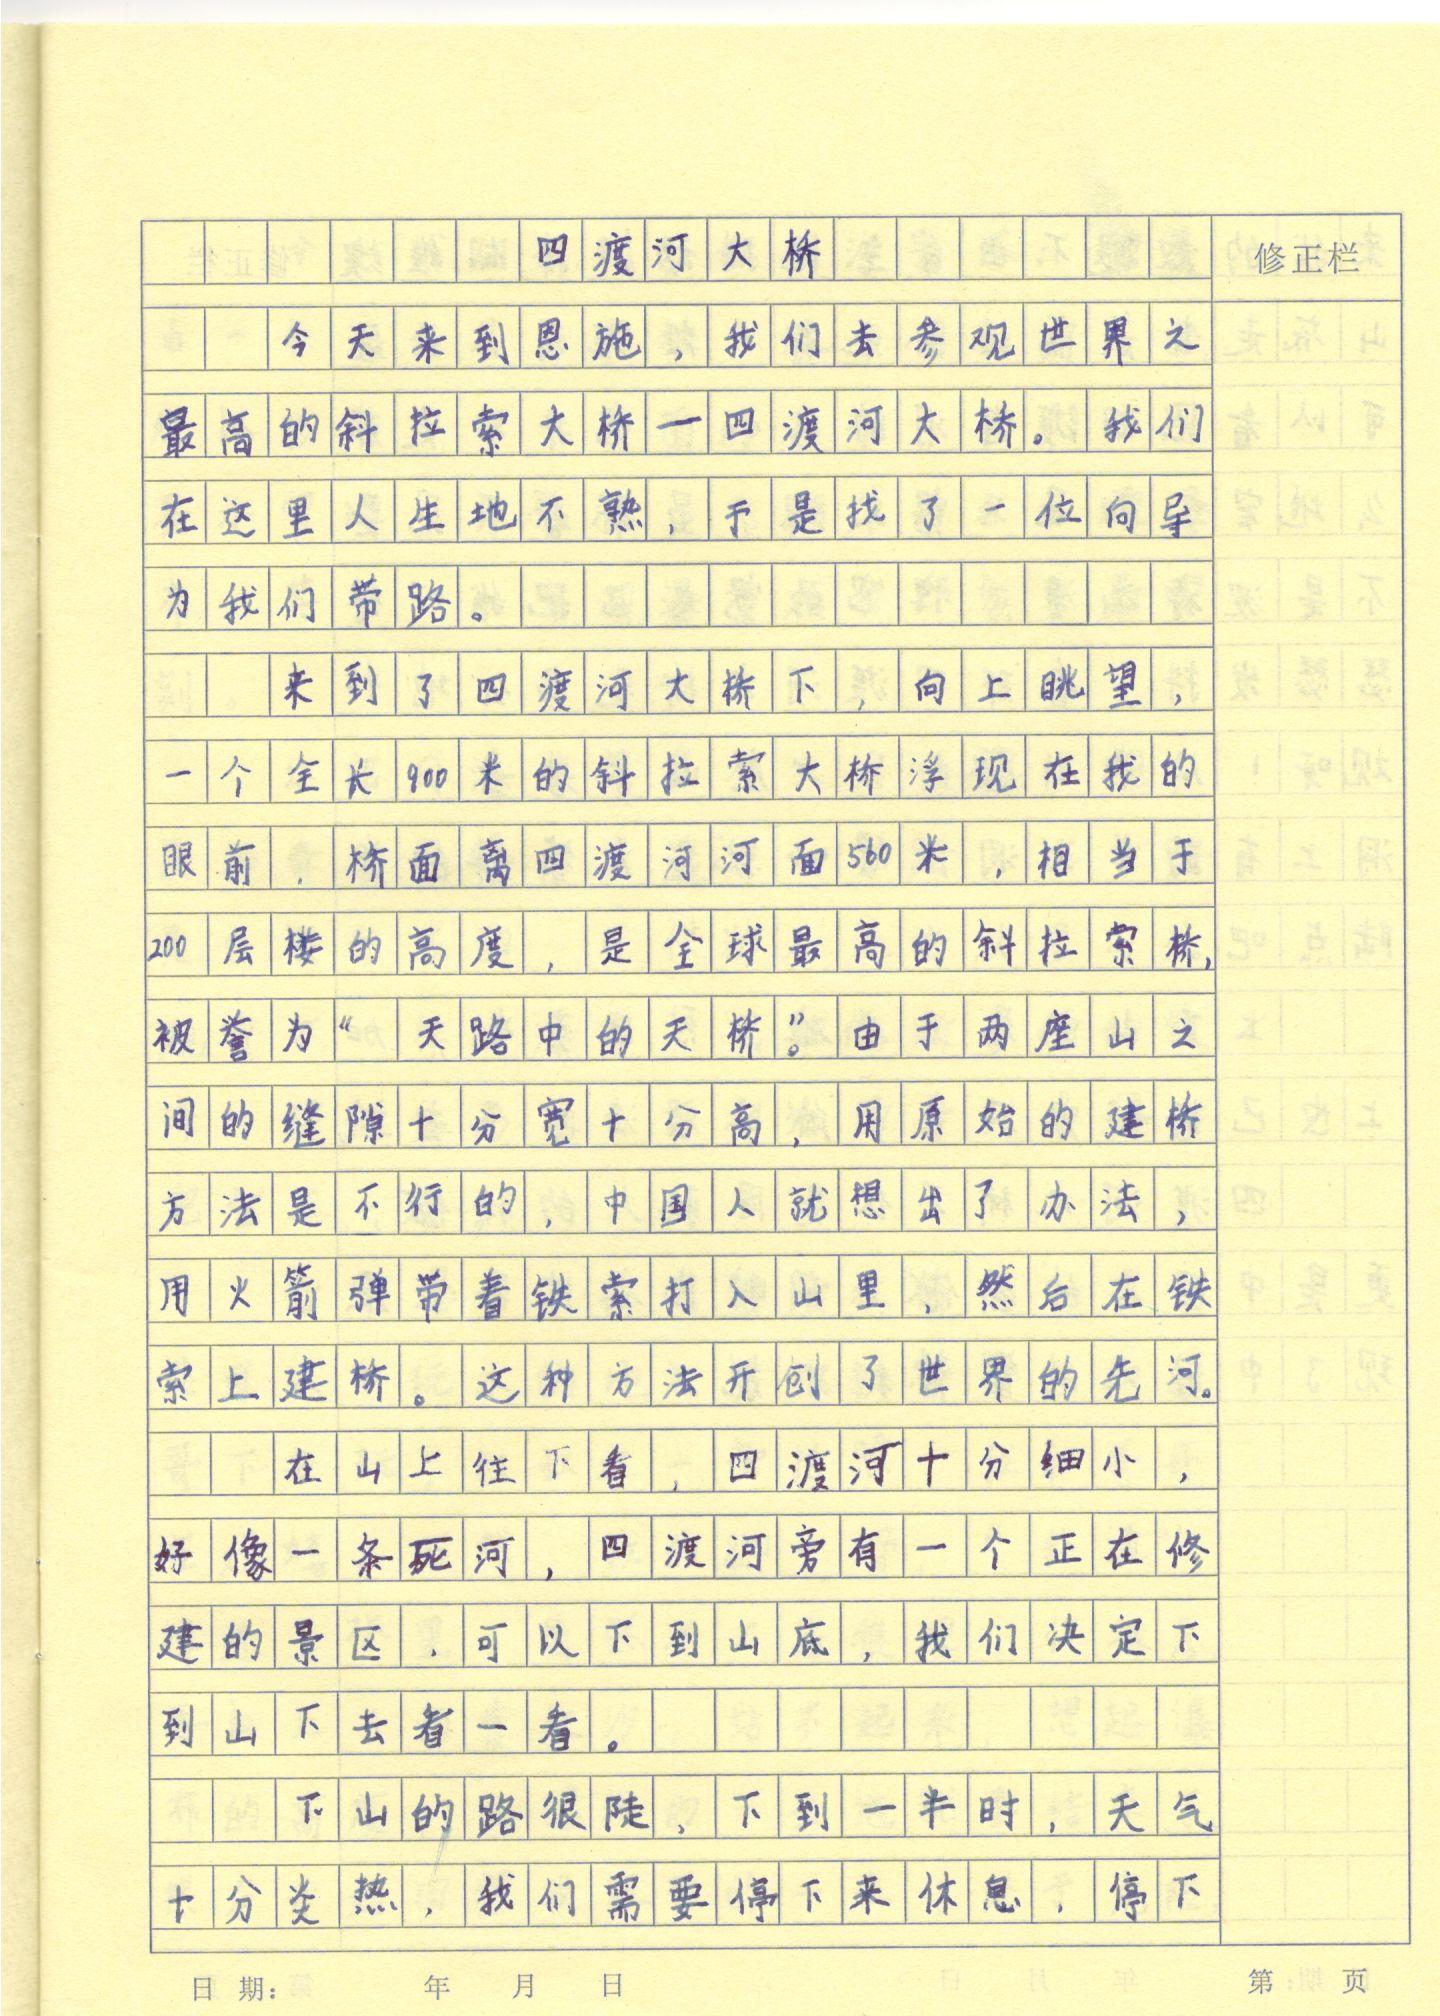 四渡河大桥
修正栏
今天来到恩施，我们去参观世界之
最高的斜拉索大桥一四渡河大桥。我们
在这里人生地不熟，于是找了一位向导
为我们带路。
来到了四渡河大桥下，向上眺望，
一个全长900米的斜拉索大桥浮现在我的
眼前，桥面离四渡河河面560米，相当于
200层楼的高度，是全球最高的斜拉索桥，
被誉为“天路中的天桥”。由于两座山之
间的缝隙十分宽十分高，用原始的建桥
方法是不行的，中国人就想出了办法，
用火箭弹带着铁索打入山里，然后在铁
索上建桥。这种方法开创了世界的先河。
在山上往下看，四渡河十分细小，
好像一条死河，四渡河旁有一个正在修
建的景区，可以下到山底，我们决定下
到山下去看一看。
下山的路很陡，下到一半时，天气
十分炎热，我们需要停下来休息，停下
日期： 年 月 日
第 页